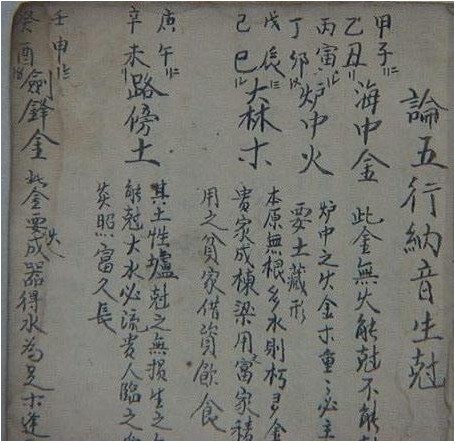 論五行納音生尅
甲子 乙丑 海中金 此金無火能尅不能
丙寅 丁卯 炉中火 炉中之火金木重〻必主
要土藏形
戊辰 己巳 大林木 本原無根多水則朽多金
貴家成棟梁用富家積
用之貧家借資飲食
庚午 辛未 路傍土 其土性墟尅之無損生之
能尅大水必流貴人臨之
英照富久長
壬申 癸酉 劍鋒金 此金要火成器得水為足木逢